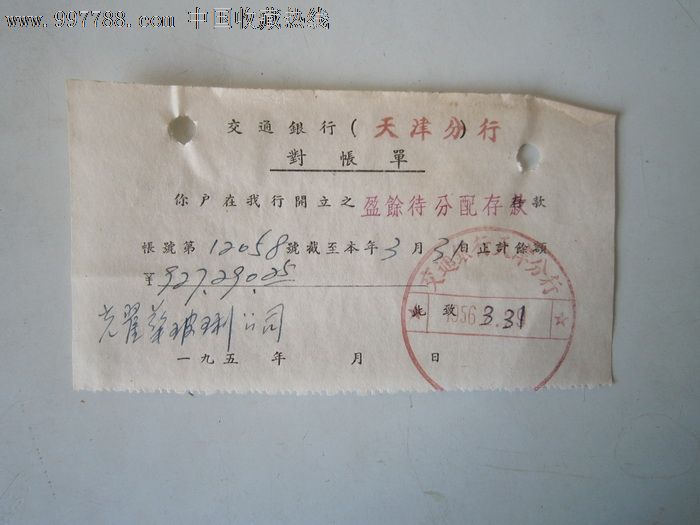 www.997788.com 中国收藏热线
交通銀行(天津分)行
對帳單
你戶在我行開立之盈餘待分配存款
帳號第12058號截至本年3月31日止計餘額
¥927.290.25
此致
華玻璃公司
一九五 年 月 日
交通銀行天津分行
1956 3.31